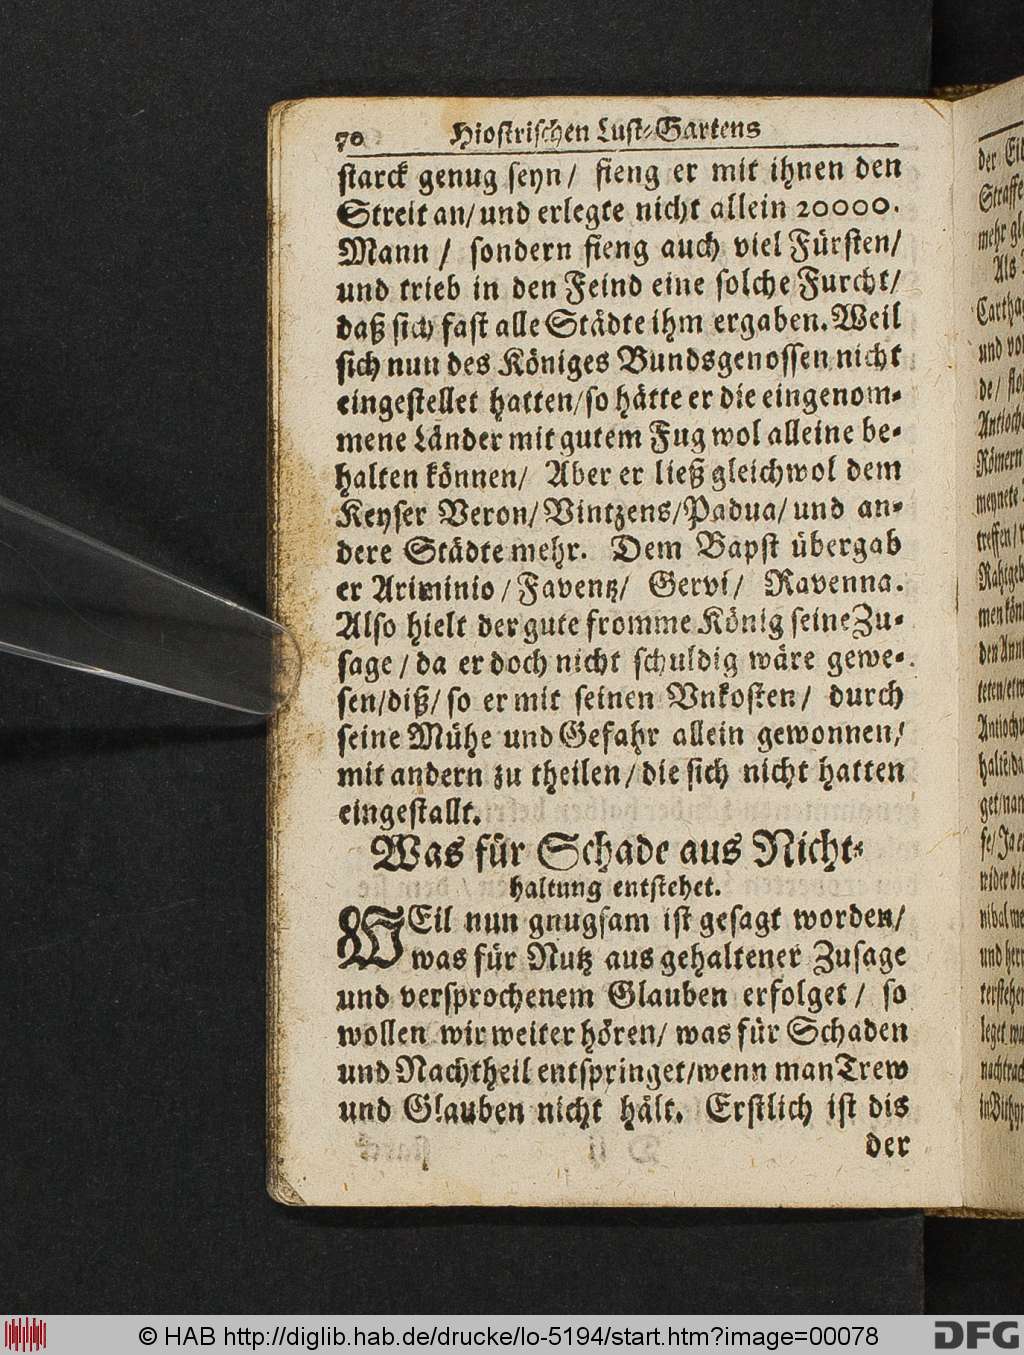 70 Hiostrischen Lust-Gartens
starck genug seyn/ fieng er mit ihnen den
Streit an/ und erlegte nicht allein 20000.
Mann / sondern fieng auch viel Fürsten/
und trieb in den Feind eine solche Furcht/
daß sich fast alle Städte ihm ergaben. Weil
sich nun des Königes Bundsgenossen nicht
eingestellet hatten/ so hätte er die eingenom-
mene Länder mit gutem Fug wol alleine be-
halten können/ Aber er ließ gleichwol dem
Keyser Veron/ Vintzens/ Padua/ und an-
dere Städte mehr. Dem Bapst übergab
er Ariminio / Faventz/ Gervi/ Ravenna.
Also hielt der gute fromme König seine Zu-
sage / da er doch nicht schuldig wäre gewe-
sen/ diß/ so er mit seinen Vnkosten/ durch
seine Mühe und Gefahr allein gewonnen/
mit andern zu theilen/ die sich nicht hatten
eingestallt.
Was für Schade aus Nicht-
haltung entstehet.
WEil nun gnugsam ist gesagt worden/
was für Nutz aus gehaltener Zusage
und versprochenem Glauben erfolget / so
wollen wir weiter hören/ was für Schaden
und Nachtheil entspringet/ wenn man Trew
und Glauben nicht hält. Erstlich ist dis
der
© HAB http://diglib.hab.de/drucke/lo-5194/start.htm?image=00078
DFG